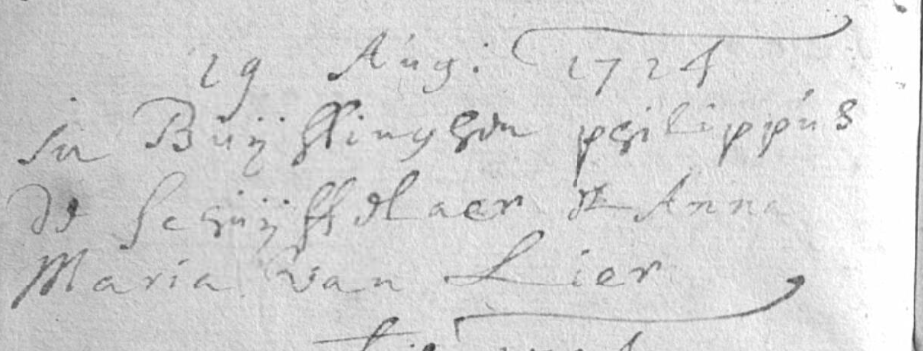 19 Aug: 1724
in Buijssinghen philippus
de Schuijffelaer et Anna
Maria van Lier